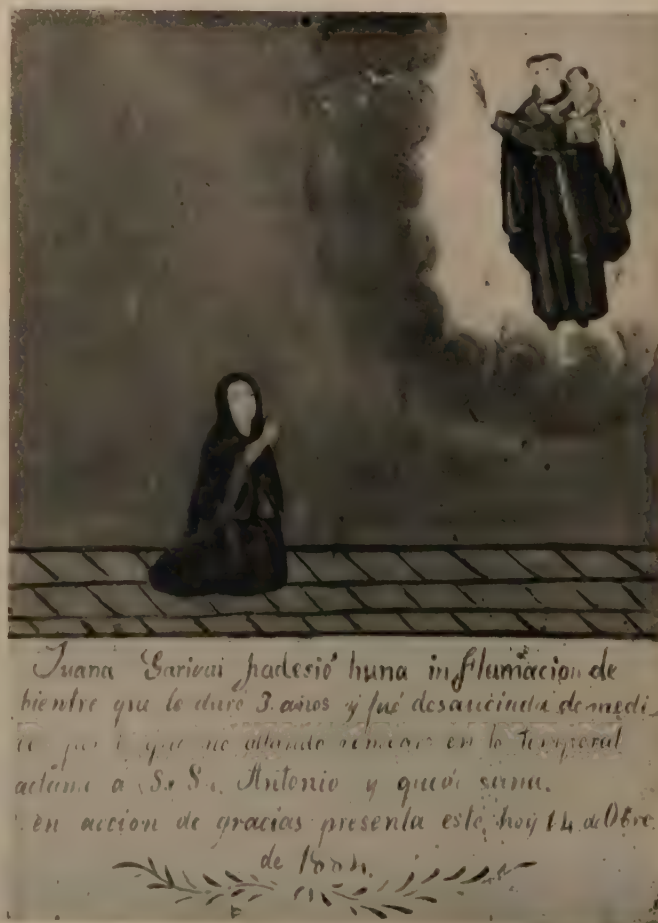 Juana Garivai padesió huna influmacion de
bientre que le duró 3 años y fué desauciada de medi
co por lo que no allando remedio en lo temporal
aclamó a S. S. Antonio y quedó sana.
en accion de gracias presenta este, hoy 14 de Obre.
de